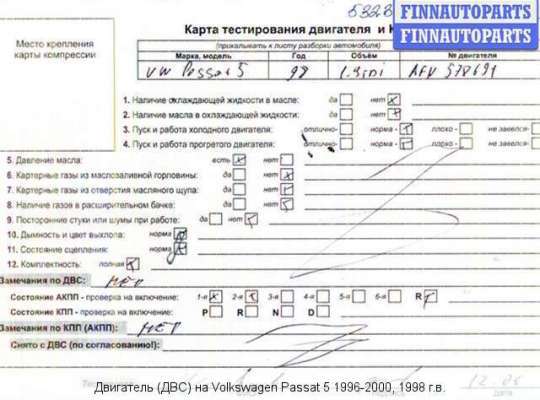 FINNAUTOPARTS
FINNAUTOPARTS
Место крепления
карты компрессии
Карта тестирования двигателя и К
(прикалывать к листу разборки автомобиля)
Марка, модель Год Объём № двигателя
VW Passat 5 98 AFN
1. Наличие охлаждающей жидкости в масле: да нет
2. Наличие масла в охлаждающей жидкости: да нет
3. Пуск и работа холодного двигателя: отлично- норма - плохо - не завелся-
4. Пуск и работа прогретого двигателя: отлично- норма - плохо - не завелся-
5. Давление масла: есть нет
6. Картерные газы из маслозаливной горловины: да нет
7. Картерные газы из отверстия масляного щупа: да нет
8. Наличие газов в расширительном бачке: да нет
9. Посторонние стуки или шумы при работе: да нет
10. Дымность и цвет выхлопа: норма
11. Состояние сцепления: норма
12. Комплектность: полная
Замечания по ДВС: нет
Состояние АКПП - проверка на включение: 1-я 2-я 3-я 4-я 5-я 6-я R
Состояние КПП - проверка на включение: P R N D
Замечания по КПП (АКПП): нет
Снято с ДВС (по согласованию!):
Двигатель (ДВС) на Volkswagen Passat 5 1996-2000, 1998 г.в.